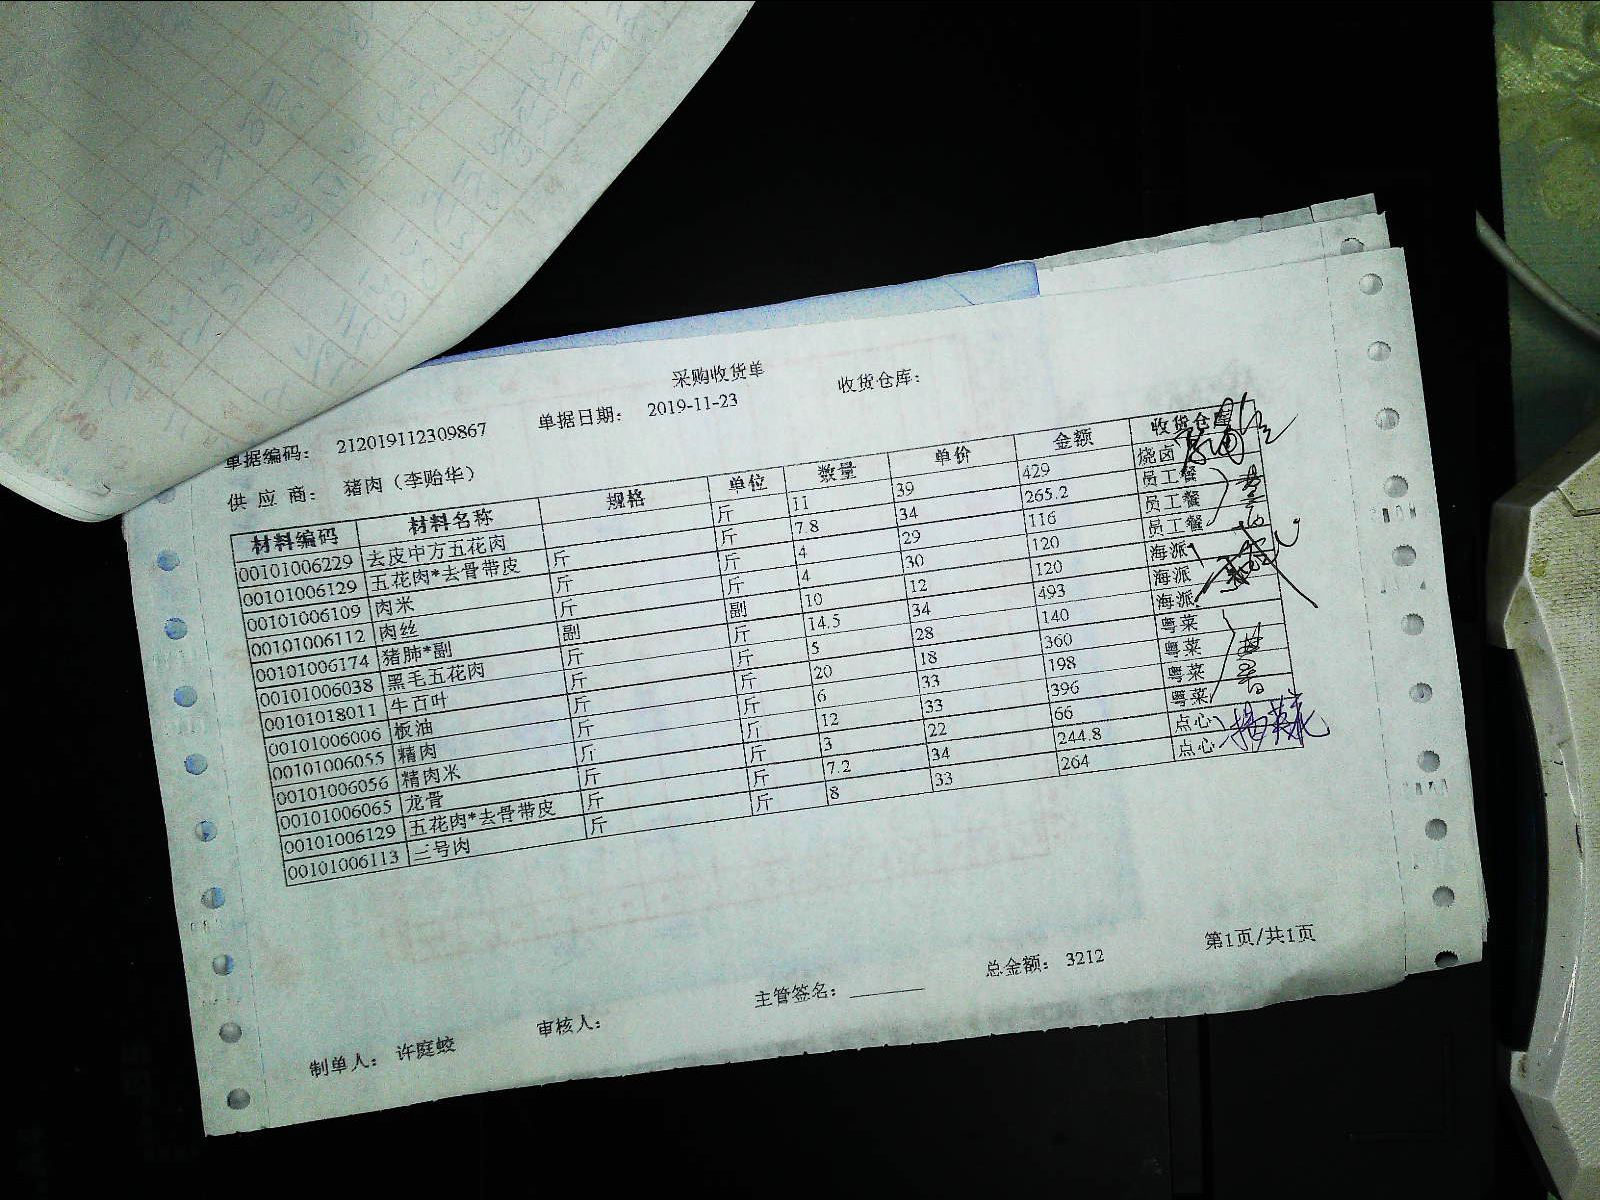 采购收货单
单据编码： 212019112309867 单据日期： 2019-11-23 收货仓库：
供 应 商： 猪肉（李贻华）
材料编码 材料名称 规格 单位 数量 单价 金额 收货仓库
00101006229 去皮中方五花肉 斤 11 39 429 烧卤
00101006129 五花肉*去骨带皮 斤 斤 7.8 34 265.2 员工餐
00101006109 肉米 斤 斤 4 29 116 员工餐
00101006112 肉丝 斤 斤 4 30 120 员工餐
00101006174 猪肺*副 副 副 10 12 120 海派
00101006038 黑毛五花肉 斤 斤 14.5 34 493 海派
00101018011 牛百叶 斤 斤 5 28 140 海派
00101006006 板油 斤 斤 20 18 360 粤菜
00101006055 精肉 斤 斤 6 33 198 粤菜
00101006056 精肉米 斤 斤 12 33 396 粤菜
00101006065 龙骨 斤 斤 3 22 66 粤菜
00101006129 五花肉*去骨带皮 斤 斤 7.2 34 244.8 点心
00101006113 三号肉 斤 斤 8 33 264 点心
制单人： 许庭蛟 审核人： 主管签名： 总金额： 3212 第1页/共1页